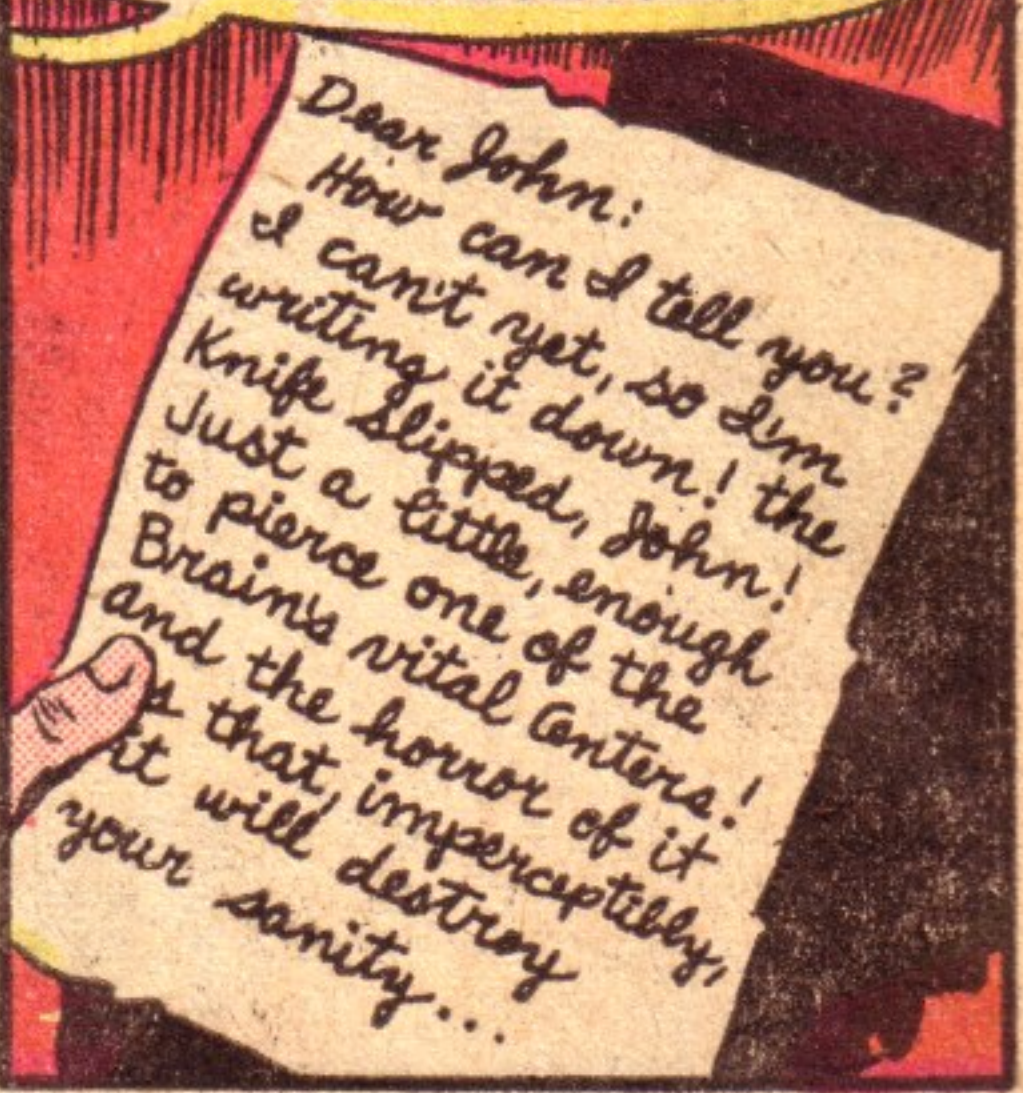 Dear John:
How can I tell you?
I can't yet, so I'm
writing it down! the
Knife slipped, John!
Just a little, enough
to pierce one of the
Brain's vital Centers!
and the horror of it
s that, imperceptibly,
it will destroy
your sanity...